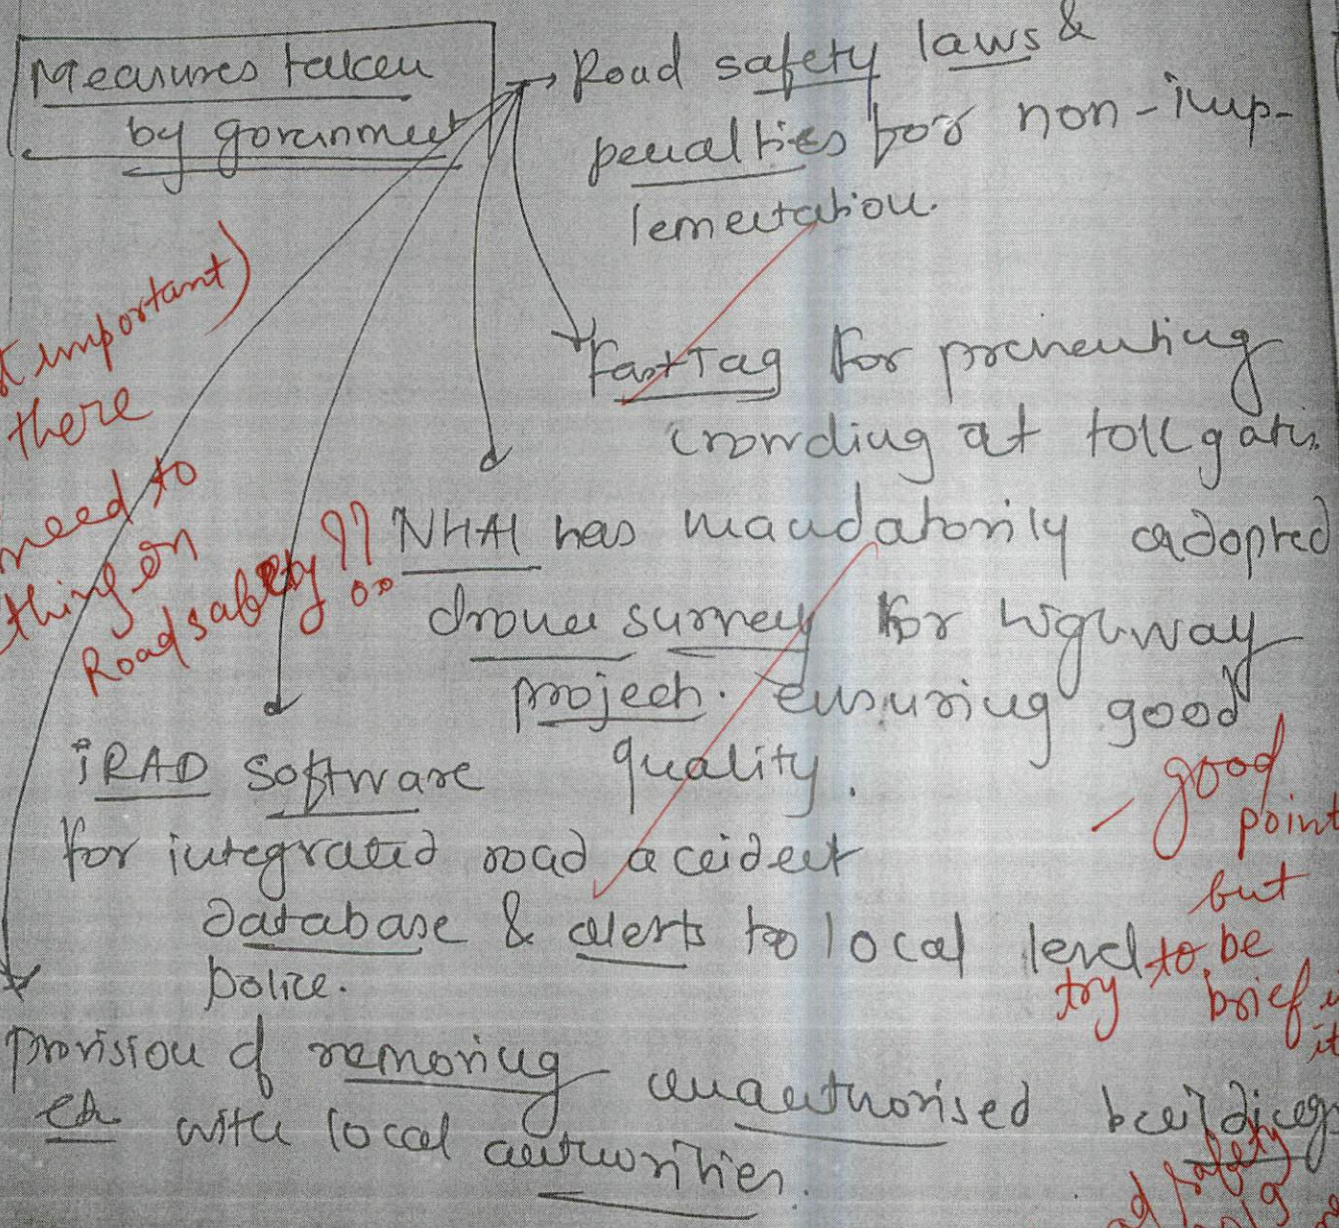 Measures taken
by government
→ Road safety laws &
penalties for non-imp-
lementation.
FastTag for preventing
crowding at toll gates
NHAI has mandatorily adopted
drone survey for highway
project. ensuring good
quality.
iRAD software
for integrated road accident
database & alerts to local level
police.
Provision of removing unauthorised buildings
etc with local authorities.
important)
there
need to
thing on
Road safety ??
- good
point
but
try to be
brief
it
safety